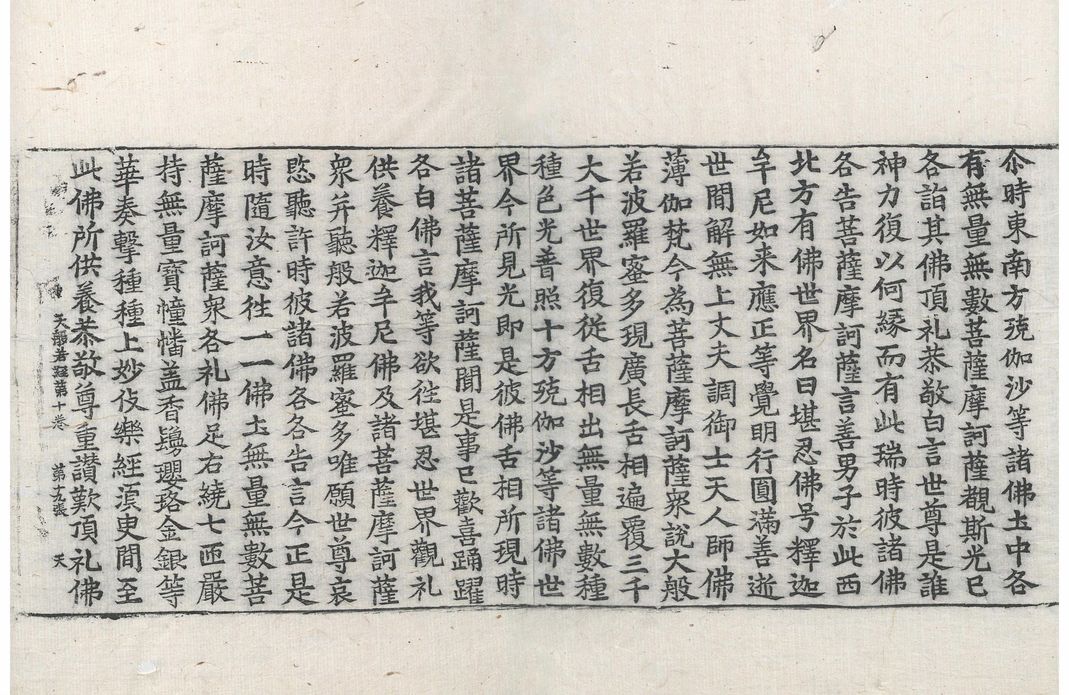 尒時東南方殑伽沙等諸佛土中各
有無量無數菩薩摩訶薩覩斯光已
各詣其佛頂礼恭敬白言世尊是誰
神力復以何緣而有此瑞時彼諸佛
各告菩薩摩訶薩言善男子於此西
北方有佛世界名曰堪忍佛号釋迦
牟尼如来應正等覺明行圓滿善逝
世間解無上丈夫調御士天人師佛
薄伽梵今為菩薩摩訶薩衆說大般
若波羅蜜多現廣長舌相遍覆三千
大千世界復從舌相出無量無數種
種色光普照十方殑伽沙等諸佛世
界今所見光即是彼佛舌相所現時
諸菩薩摩訶薩聞是事已歡喜踊躍
各白佛言我等欲往堪忍世界觀礼
供養釋迦牟尼佛及諸菩薩摩訶薩
衆并聽般若波羅蜜多唯願世尊哀
愍聽許時彼諸佛各各告言今正是
時隨汝意往一一佛土無量無數菩
薩摩訶薩衆各礼佛足右繞七匝嚴
持無量寶幢幡盖香鬘瓔珞金銀等
華奏擊種種上妙伎樂經須臾間至
此佛所供養恭敬尊重讚歎頂礼佛
大般若經第十卷 第十九張 天